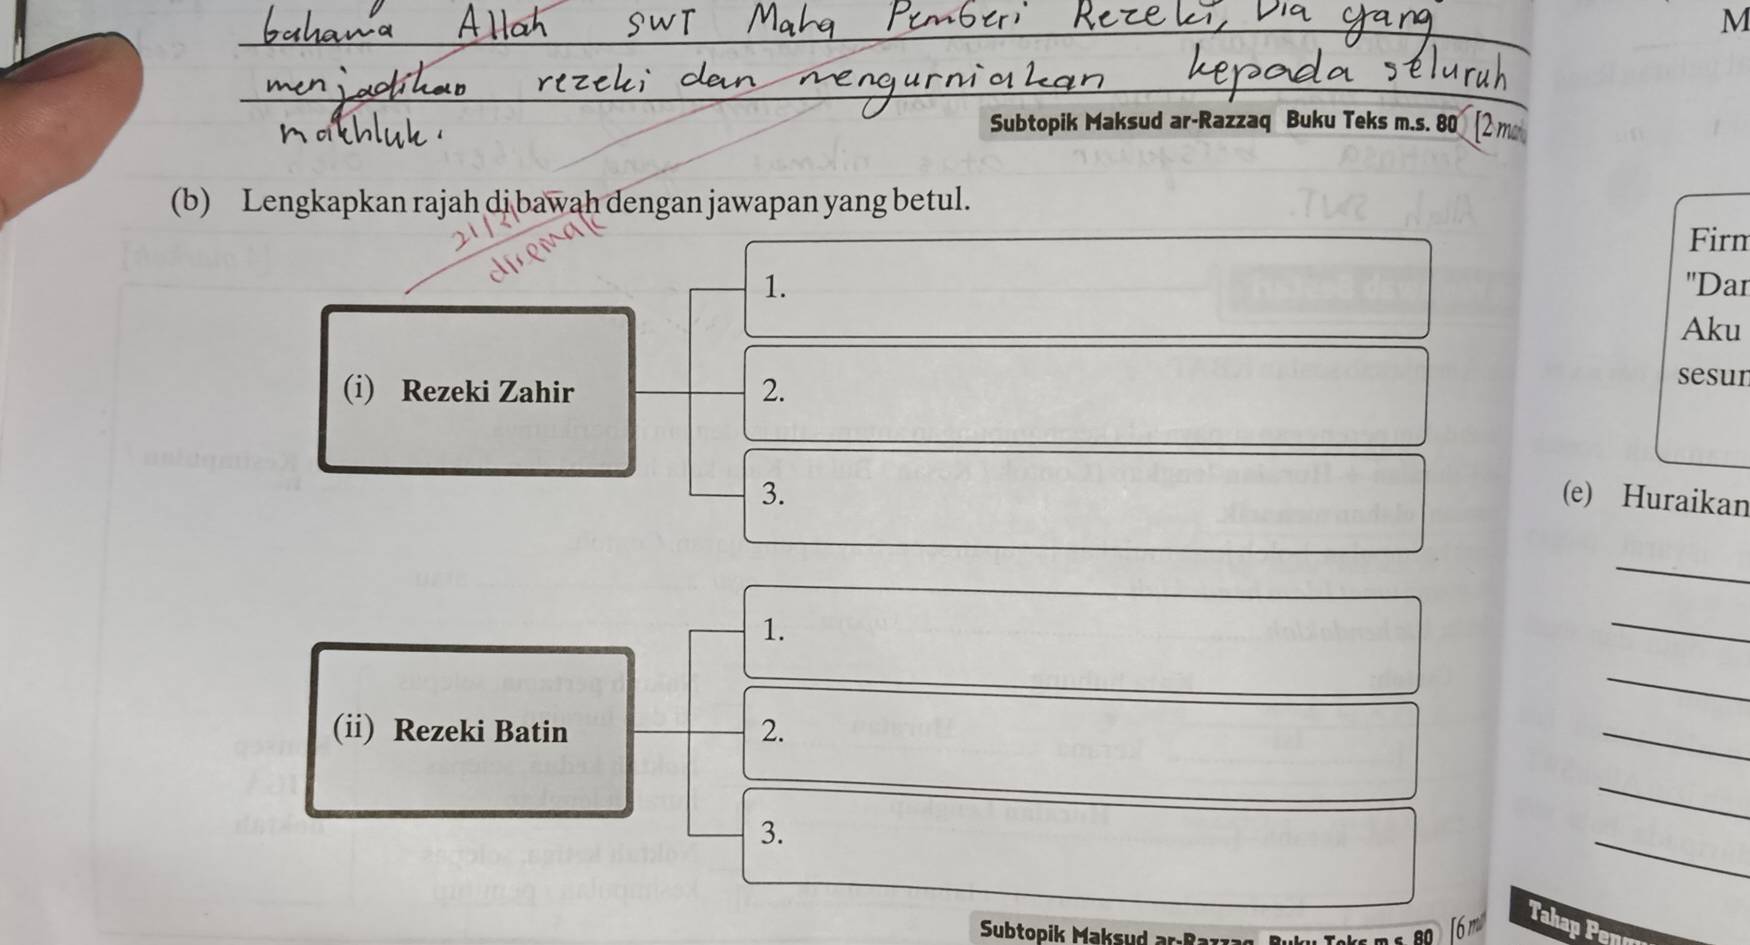 bahawa Allah SWT Maha Pemberi Rezeki, Dia yang
menjadikan rezeki dan mengurniakan kepada seluruh
makhluk.
Subtopik Maksud ar-Razzaq Buku Teks m.s. 80 [2 ma
(b) Lengkapkan rajah di bawah dengan jawapan yang betul.
disemak
1.
(i) Rezeki Zahir
2.
3.
1.
(ii) Rezeki Batin
2.
3.
Subtopik Maksud ar-Razzaq Buku Teks m.s. 80 [6 m
M
Firm
"Dar
Aku
sesun
(e) Huraikan
Tahap Pen